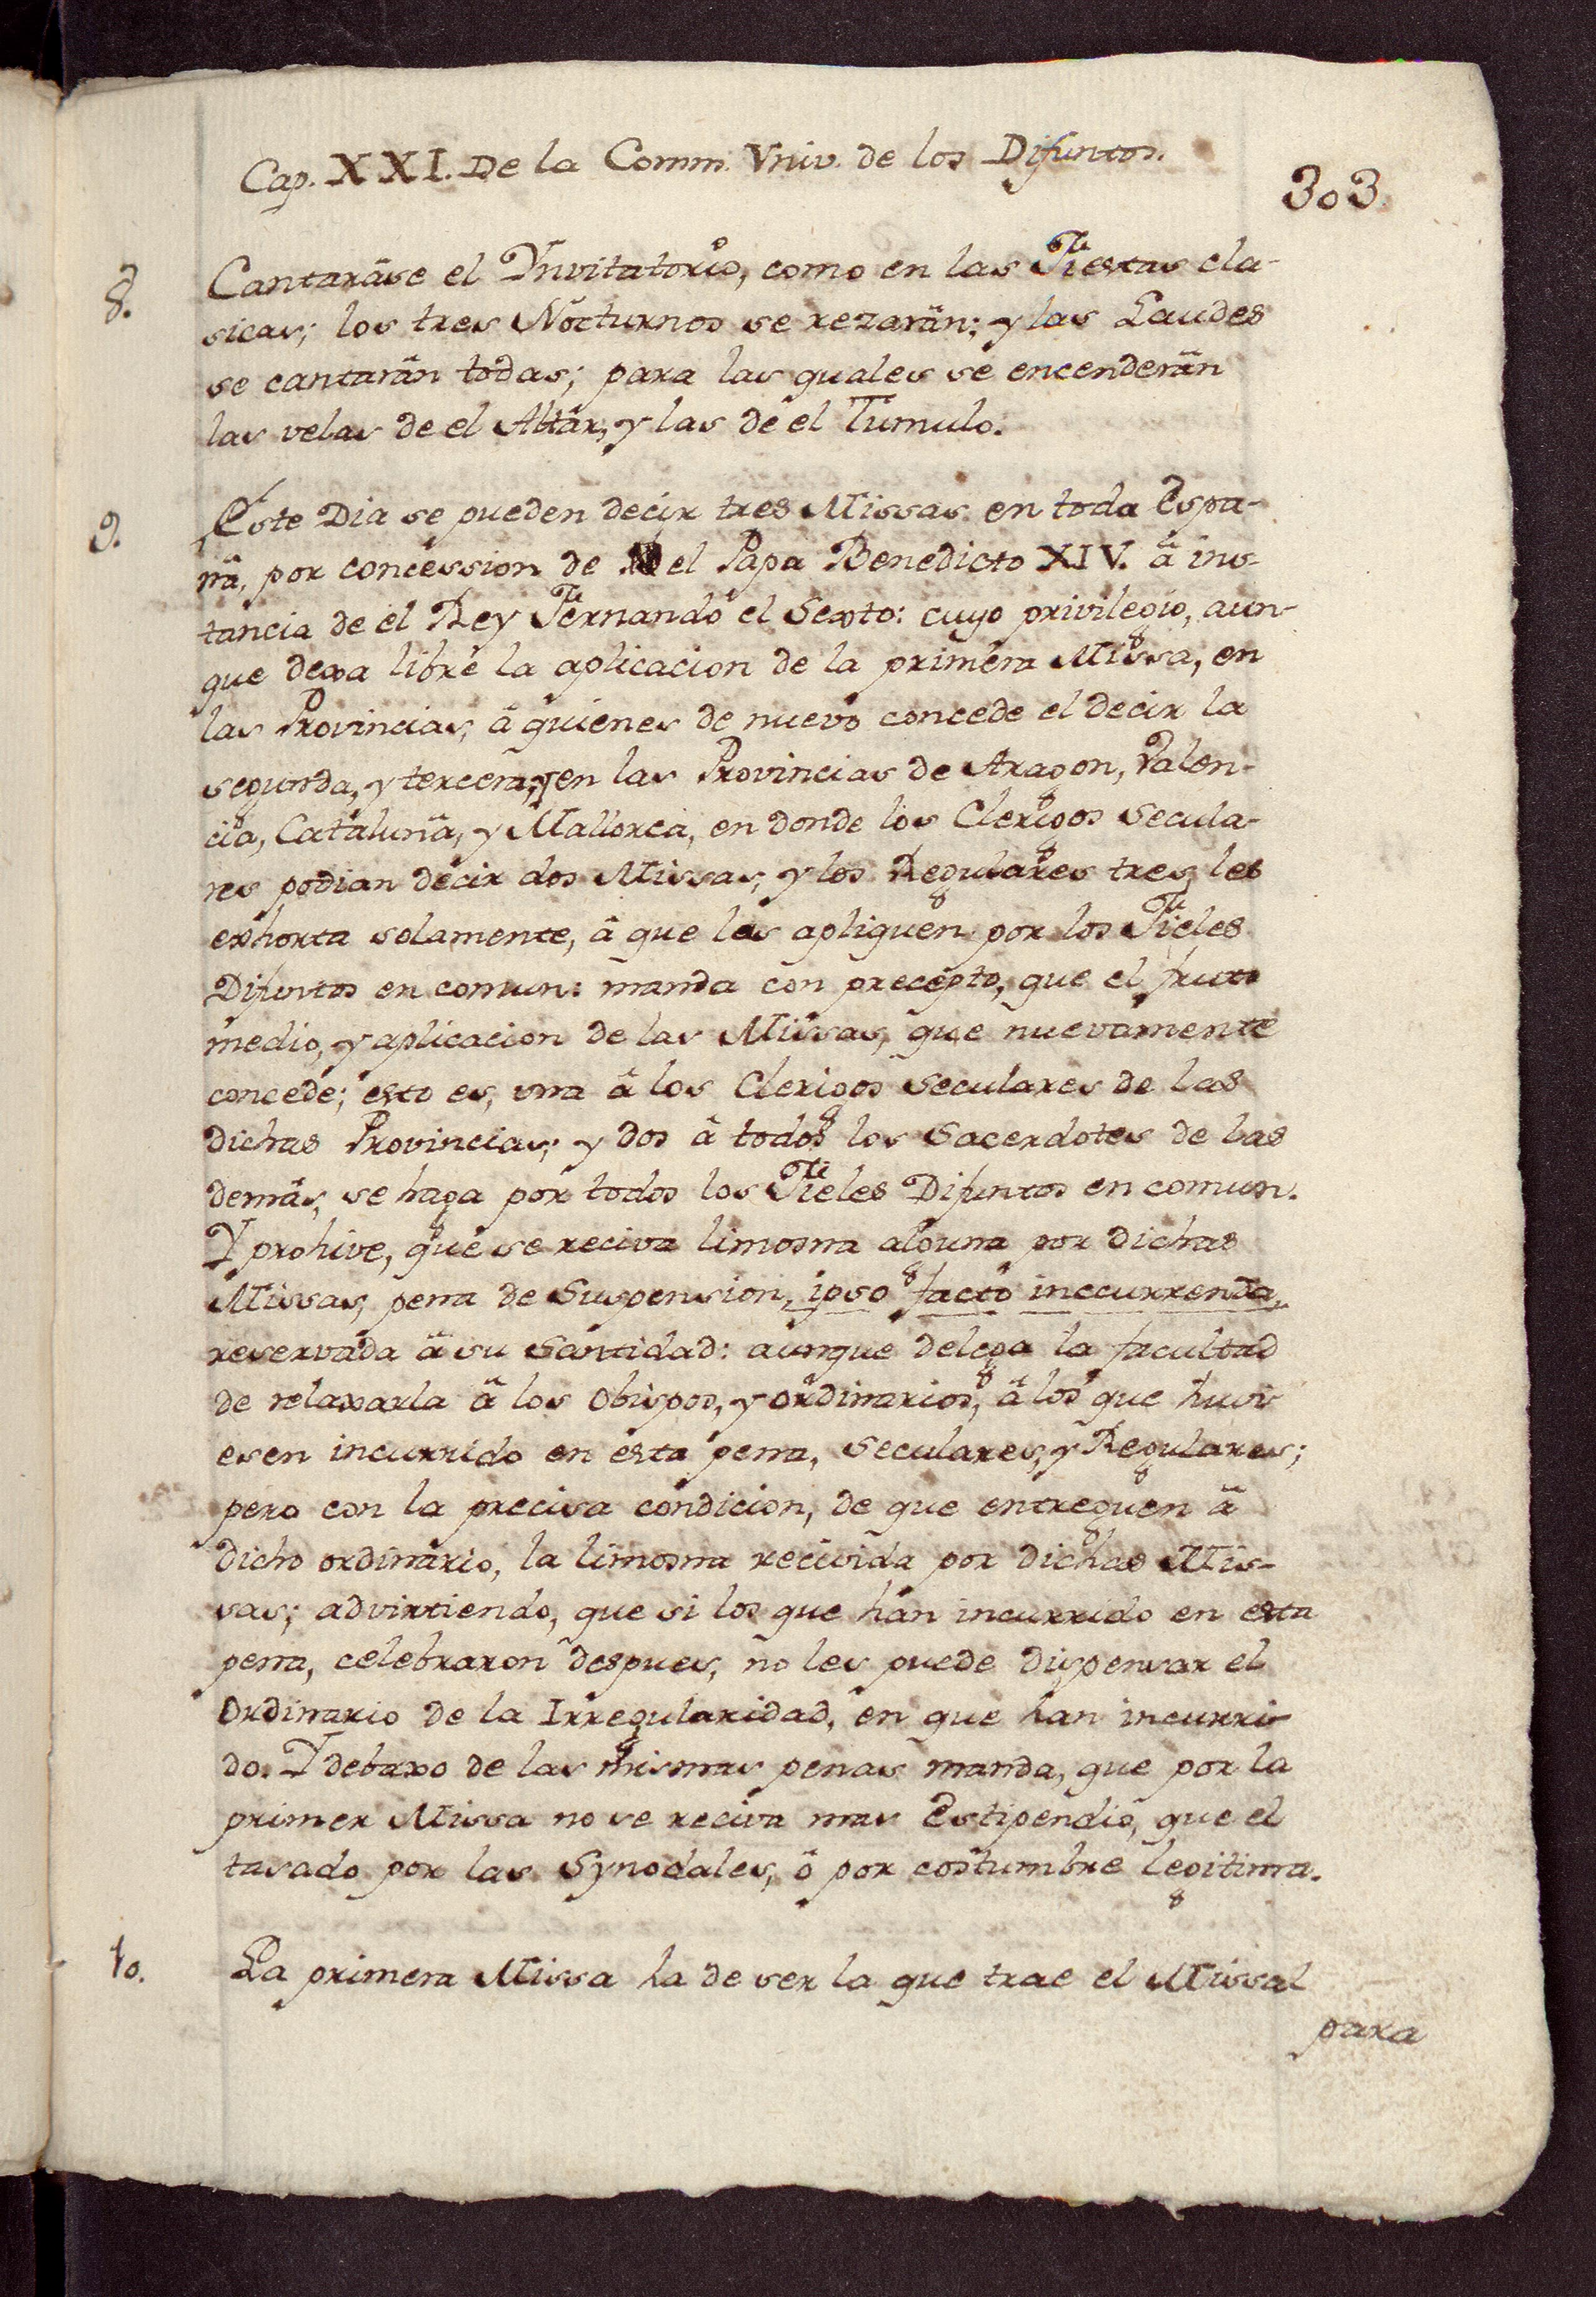 Cap. XXI. De la Comm. Vniv. de los Difuntos.
303.
8. Cantaráse el Ynvitatorio, como en las Fiestas cla-
sicas; los tres Nocturnos se rezarán; y las Laudes
se cantarán todas; para las quales se encenderán
las velas de el Altár, y las de el Tumulo.
9. Este Dia se pueden decir tres Missas en toda Espa-
ña, por concession de el Papa Benedicto XIV. â ins-
tancia de el Rey Fernando el Sexto: cuyo privilegio, aun-
que dexa libre la aplicacion de la primera Missa, en
las Provincias, â quienes de nuevo concede el decir la
segunda, y tercera; y en las Provincias de Aragon, Valen-
cia, Cataluña, y Mallorca, en donde los Clerigos Secula-
res podian decir dos Missas, y los Regulares tres, les
exhorta solamente, â que las apliquen por los Fieles
Difuntos en comun: manda con precepto, que el fruto
medio, y aplicacion de las Missas, que nuevamente
concede; esto es, una â los Clerigos Seculares de las
dichas Provincias; y dos â todos los Sacerdotes de las
demás, se haga por todos los Fieles Difuntos en comun.
Y prohive, que se reciva limosna alguna por dichas
Missas, pena de Suspension, ipso facto incurrenda,
reservada â su Santidad: aunque delega la facultad
de relaxarla â los Obispos, y Ordinarios, â los que huvi
esen incurrido en esta pena, Seculares, y Regulares;
pero con la precisa condicion, de que entreguen â
dicho ordinario, la limosna recivida por dichas Mis-
sas; advirtiendo, que si los que han incurrido en esta
pena, celebraron despues, no les puede dispensar el
Ordinario de la Irregularidad, en que han incurri-
do. Y debaxo de las mismas penas manda, que por la
primer Missa no se reciva mas Estipendio, que el
tasado por las Synodales, ô por costumbre legitima.
10. La primera Missa ha de ser la que trae el Missal
para